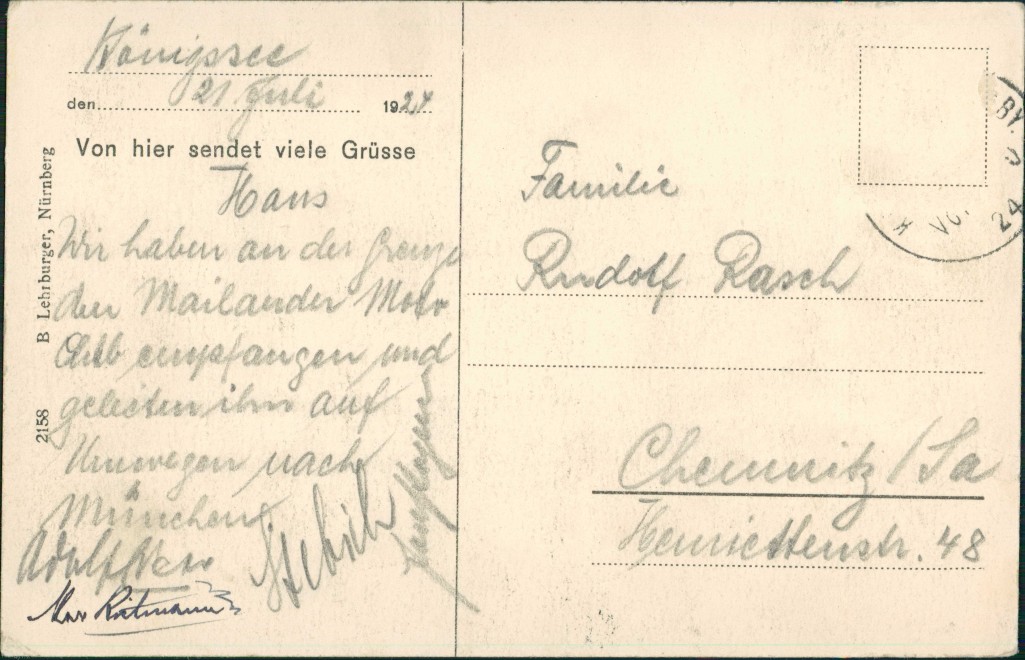 Königssee
den 21 Juli 1924
Von hier sendet viele Grüsse
Hans
Wir haben an der Grenze
den Mailander Motor
Club empfangen und
geleiten ihn auf
Umwegen nach
München
Adolf
Max
2158 B Lehrburger, Nürnberg
Familie
Rudolf Rasch
Chemnitz/Sa
Henriettenstr. 48
BY.
24